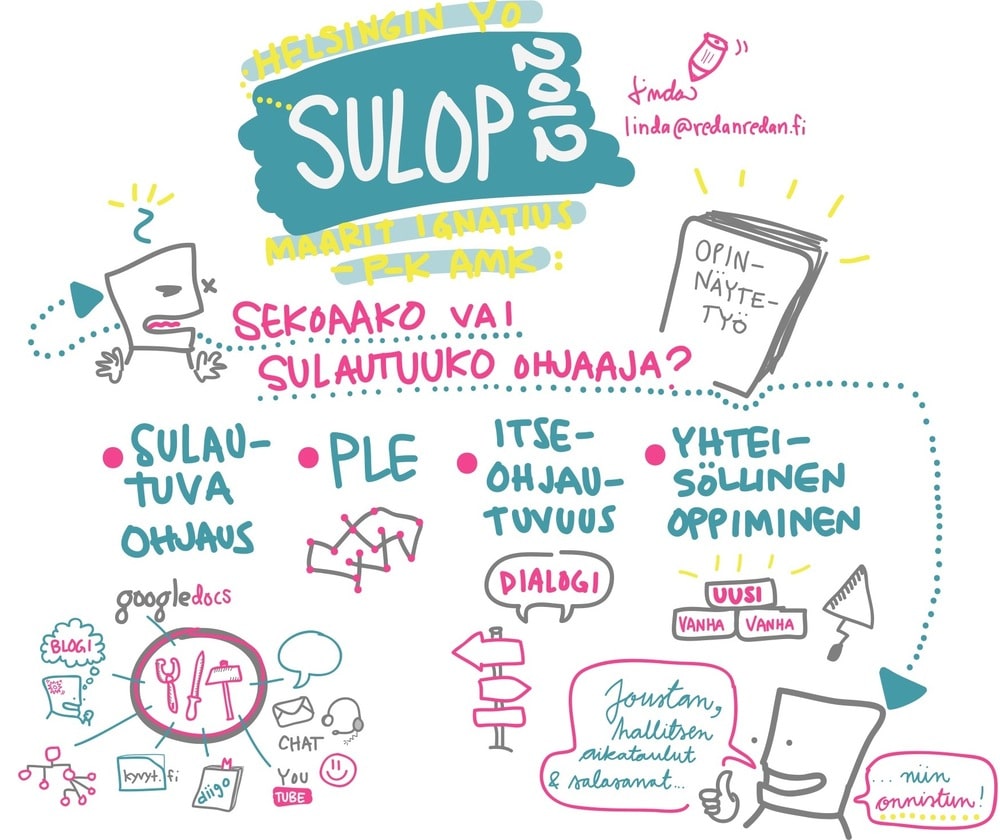 HELSINGIN YO
SULOP 2012
MAARIT IGNATIUS
- P-K AMK:
Linda
linda@redanredan.fi
SEKOAAKO VAI
SULAUTUUKO OHJAAJA?
OPIN-
NÄYTE-
TYÖ
• SULAU-
TUVA
OHJAUS
• PLE
• ITSE-
OHJAU-
TUVUUS
• YHTEI-
SÖLLINEN
OPPIMINEN
googledocs
BLOGI
CHAT
YOU
TUBE
diigo
kyvyt.fi
DIALOGI
UUSI
VANHA VANHA
Joustan,
hallitsen
aikataulut
& salasanat...
... niin
onnistun!